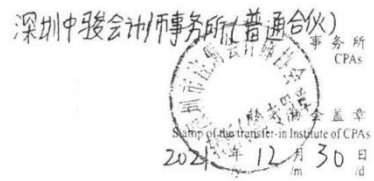 深圳中骏会计师事务所(普通合伙)
事务所
CPAs
会盖章
Stamp of the transfer-in Institute of CPAs
2021年12月30日
/y /m /d